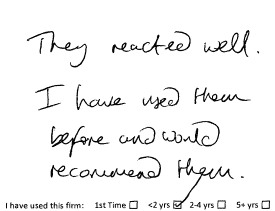 They reacted well.
I have used them
before and would
recommend them.
I have used this firm: 1st Time ☐ <2 yrs ☑ 2-4 yrs ☐ 5+ yrs ☐